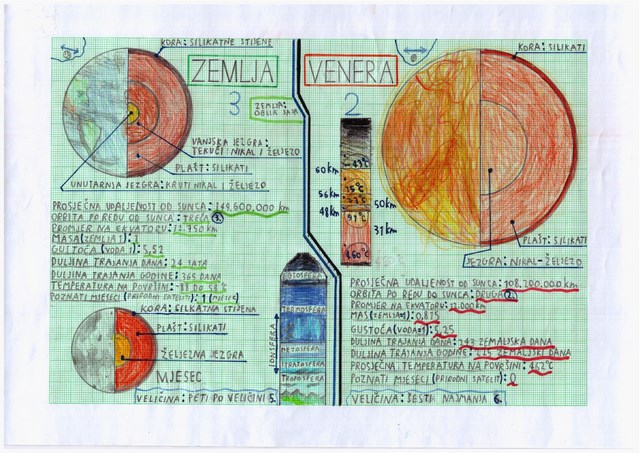 KORA: SILIKATNE STIJENE
ZEMLJA
3
ZEMLJA:
OBLIK JAJA
VANJSKA JEZGRA:
TEKUĆI NIKAL I ŽELJEZO
PLAŠT: SILIKATI
UNUTARNJA JEZGRA: KRUTI NIKAL I ŽELJEZO
PROSJEČNA UDALJENOST OD SUNCA: 149.600.000 km
ORBITA PO REDU OD SUNCA: TREĆA 3.
PROMJER NA EKVATORU: 12.750 km
MASA (ZEMLJA 1): 1
GUSTOĆA (VODA 1): 5,52
DULJINA TRAJANJA DANA: 24 SATA
DULJINA TRAJANJA GODINE: 365 DANA
TEMPERATURA NA POVRŠINI: -88 DO 58°C
POZNATI MJESECI (PRIRODNI SATELITI): 1 (MJESEC)
KORA: SILIKATNA STIJENA
PLAŠT: SILIKATI
ŽELJEZNA JEZGRA
MJESEC
VELIČINA: PETI PO VELIČINI 5.
EGZOSFERA
TERMOSFERA
IONSFERA
MEZOSFERA
STRATOSFERA
TROPOSFERA
VENERA
2
KORA: SILIKATI
60 km
56 km
50 km
48 km
31 km
-43°C
PLAŠT: SILIKATI
JEZGRA: NIKAL-ŽELJEZO
PROSJEČNA UDALJENOST OD SUNCA: 108.200.000 km
ORBITA PO REDU OD SUNCA: DRUGA 2.
PROMJER NA EKVATORU: 12.000 km
MASA (ZEMLJA 1): 0,815
GUSTOĆA (VODA 1): 5,25
DULJINA TRAJANJA DANA: 243 ZEMALJSKA DANA
DULJINA TRAJANJA GODINE: 225 ZEMALJSKI DANA
PROSJEČNA TEMPERATURA NA POVRŠINI: 462°C
POZNATI MJESECI (PRIRODNI SATELIT): 0
VELIČINA: ŠESTI NAJMANJA 6.